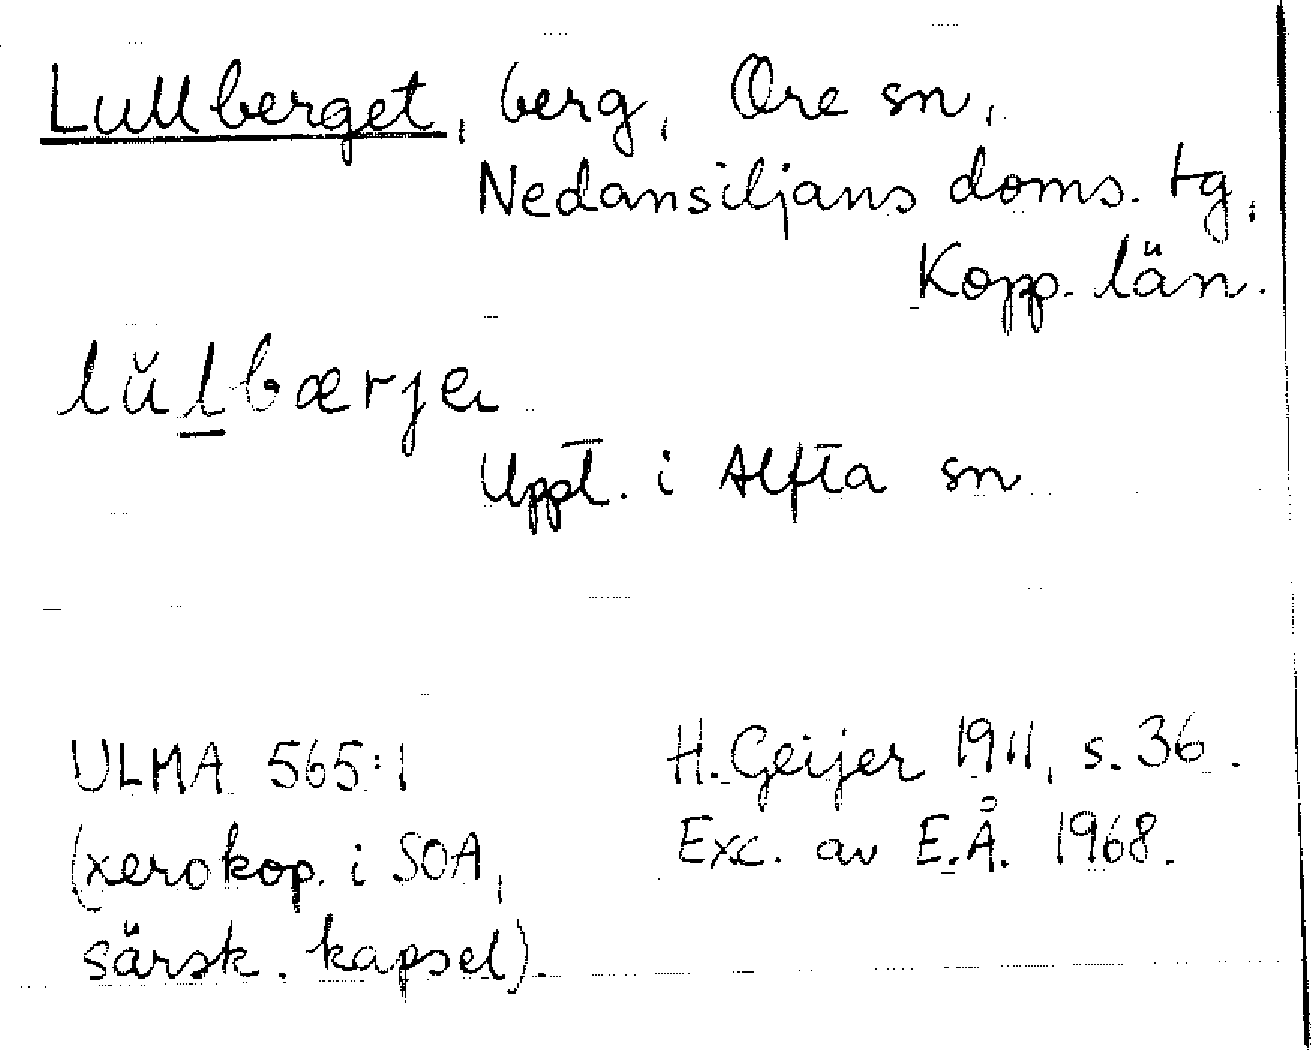 Lullberget, berg, Ore sn,
Nedansiljans doms. tg,
Kopp. län.
lŭl̲bærjeı
Uppt. i Alfta sn
ULMA 565:1
(xerokop. i SOA,
särsk. kapsel).
H. Geijer 1911, s. 36.
Exc. av E.Å. 1968.